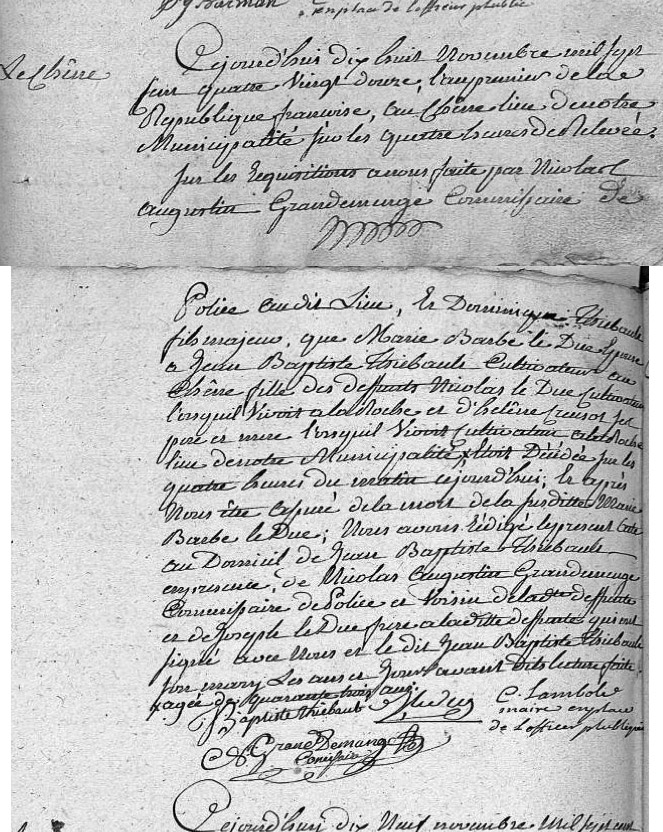 en place de l'officier publicé
Le Chêne
Cejourd'huis dix huit Novembre mil sept
sent quatre Vingt douze, l'an premier de la
Republique francoise, au Chêne lieu denotre
Municipalité sur les quattre heures de Relevée.
sur les Requisitions anous faite par Nicolas
augustin Grandemenge Commissaire de
Police audit Lieu, Et Dominique Thiebault
fils majeur, que Marie Barbe le Duc Epouse
a Jean Baptiste Thiebault Cultivateur au
Chêne fille des deffunts Nicolas le Duc Cultivateur
lorsquil Vivoit ala Roche et d'helêne Creusot ses
pere et mere lorsquil Vivoit Cultivateur Roche
lieu denotre Municipalité Etoit Décédée sur les
quatre heures du matin cejourd'hui; Et après
Nous être assuré dela mort de la susditte Marie
Barbe le Duc; Nous avons Rédigé lepresent acte
au Domicil de Jean Baptiste Thiebault
enpresence, de Nicolas Augustin Grandemenge
Commissaire dePolice et Voisin deladte deffunte
et deJoseph le Duc frere aladitte deffunte qui ont
signé avec Nous et le dit Jean Baptiste Thiebault
son mary Les ans et Jours avant dits lecture faite
agée de quarante trois ans.
J Baptiste thiebault J leduc C. Lambole
maire en place
de l'officier publique
N A Grand Demange
Comissaire
Cejourd'hui dix Neuf novembre Mil sept cent